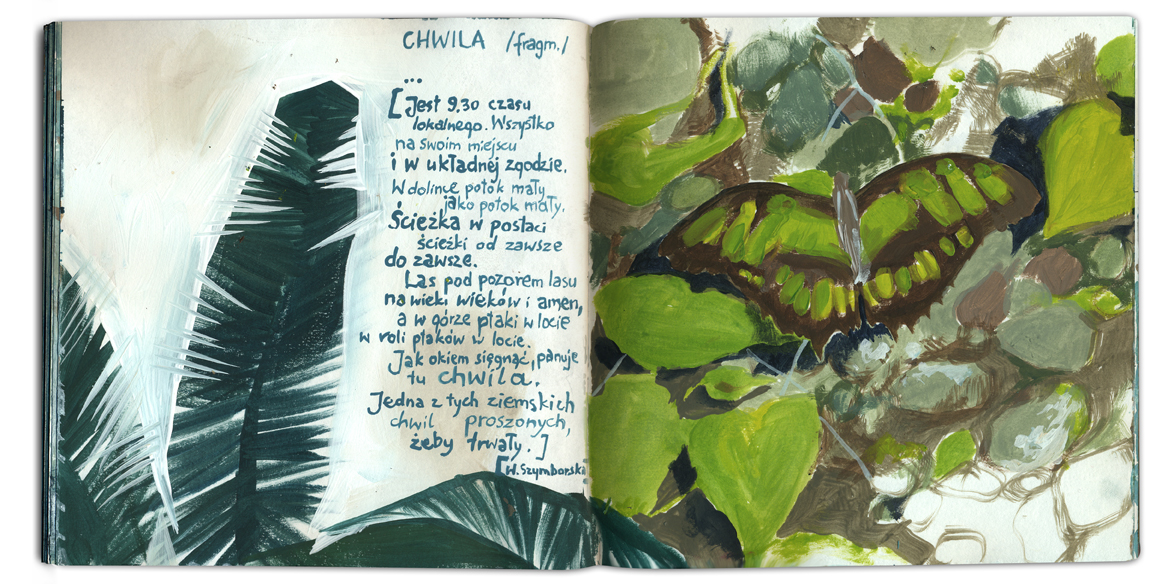 CHWILA /fragm./
...
[Jest 9.30 czasu
lokalnego. Wszystko
na swoim miejscu
i w układnej zgodzie.
W dolince potok mały
jako potok mały.
Ścieżka w postaci
ścieżki od zawsze
do zawsze.
Las pod pozorem lasu
na wieki wieków i amen,
a w górze ptaki w locie
w roli ptaków w locie.
Jak okiem sięgnąć, panuje
tu chwila.
Jedna z tych ziemskich
chwil proszonych,
żeby trwały.]
[W. Szymborska